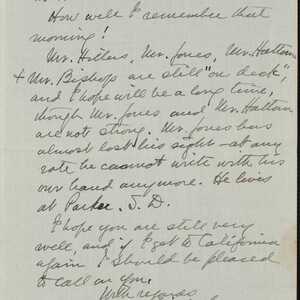 How well I remember that
morning!
Mr. Hillers, Mr. Jones, Mr. Hattan
+ Mr. Bishop are still "on deck",
and I hope will be a long time,
though Mr. Jones and Mr. Hattan
are not strong. Mr. Jones has
almost lost his sight - at any
rate he cannot write with his
own hand anymore. He lives
at Parker, S.D.
I hope you are still very
well, and if I get to California
again I should be pleased
to call on you.
With regards